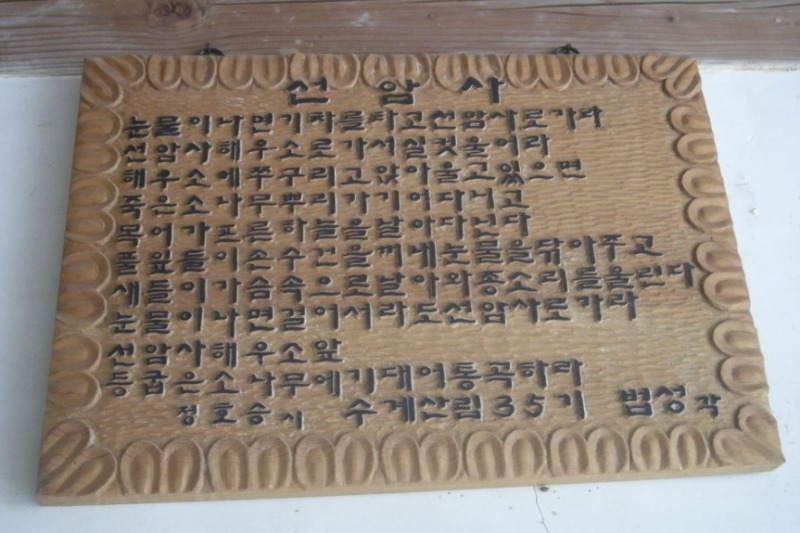 선 암 사
눈물이나면기차를타고선암사로가라
선암사해우소로가서실컷울어라
해우소에쭈구리고앉아울고있으면
죽은소나무뿌리가기어다니고
목어가프른하늘을날아다닌다
풀잎들이손수건을꺼내눈물을닦아주고
새들이가슴속으로날아와종소리를울린다
눈물이나면걸어서라도선암사로가라
선암사해우소앞
등굽은소나무에기대어통곡하라
정호승시 수계산림35기 범성각